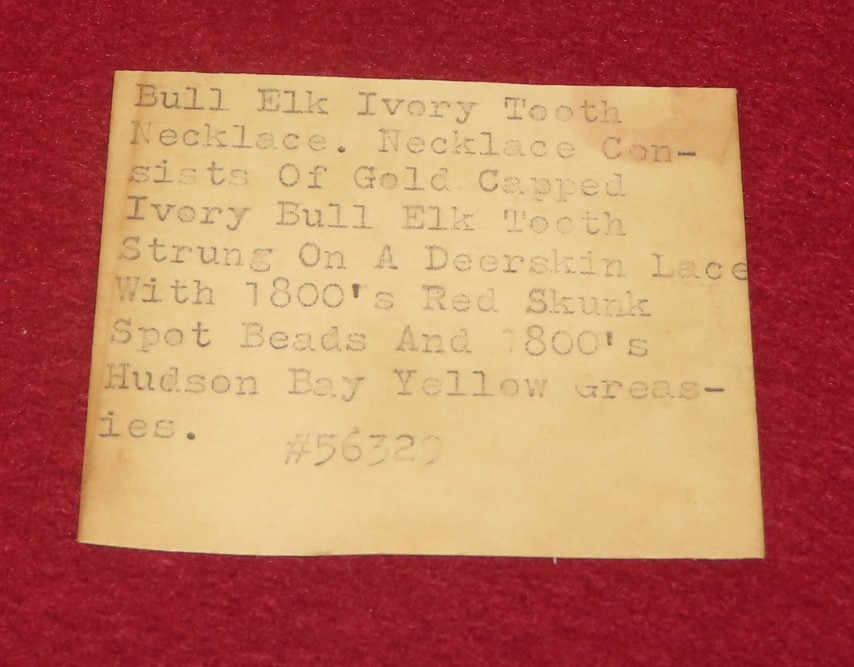 Bull Elk Ivory Tooth
Necklace. Necklace Con-
sists Of Gold Capped
Ivory Bull Elk Tooth
Strung On A Deerskin Lace
With 1800's Red Skunk
Spot Beads And 1800's
Hudson Bay Yellow Greas-
ies.
#56329